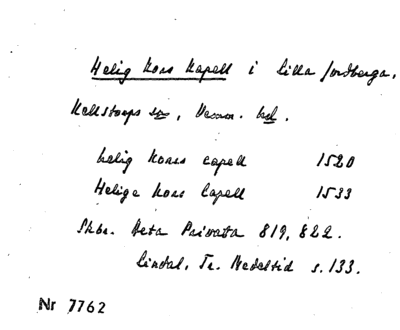 Helig Kors Kapell i Lilla Jordberga.
Källstorps sn, Vemm. hd.
helig Korss capell 1520
Helige Kors Capell 1533
Skbr. Beta Privata 819, 822.
Lindal, Tr. Medeltid s. 133.
Nr 7762